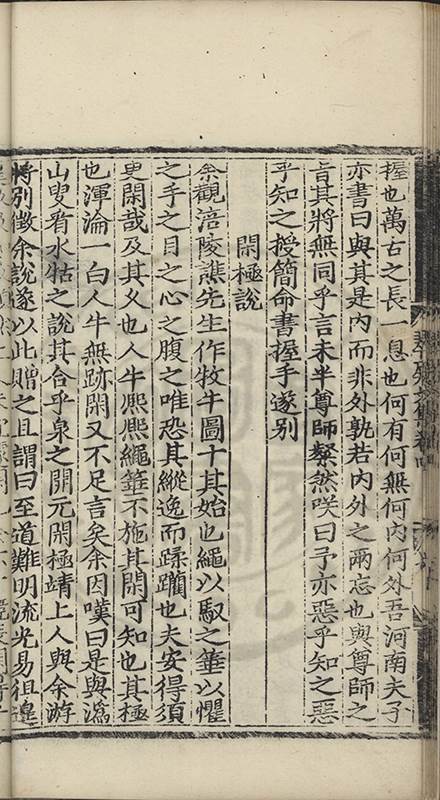 握也萬古之長一息也何有何無何内何外吾河南夫子
亦書曰與其是内而非外孰若内外之兩忘也與尊師之
旨其將無同乎言未半尊師粲然咲曰予亦惡乎知之惡
乎知之授簡命書握手遂别
閑極說
余觀涪陵譙先生作牧牛圖十其始也繩以馭之箠以懼
之手之目之心之腹之唯恐其縱逸而蹂躪也夫安得須
更閑哉及其久也人牛熈熈繩箠不施其閑可知也其極
也渾淪一白人牛無跡閑又不足言矣余因嘆曰是與溈
山叟看水牯之說其合乎泉之開元閑極靖上人與余游
將别徵余說遂以此贈之且謂曰至道難明流光易徂遑